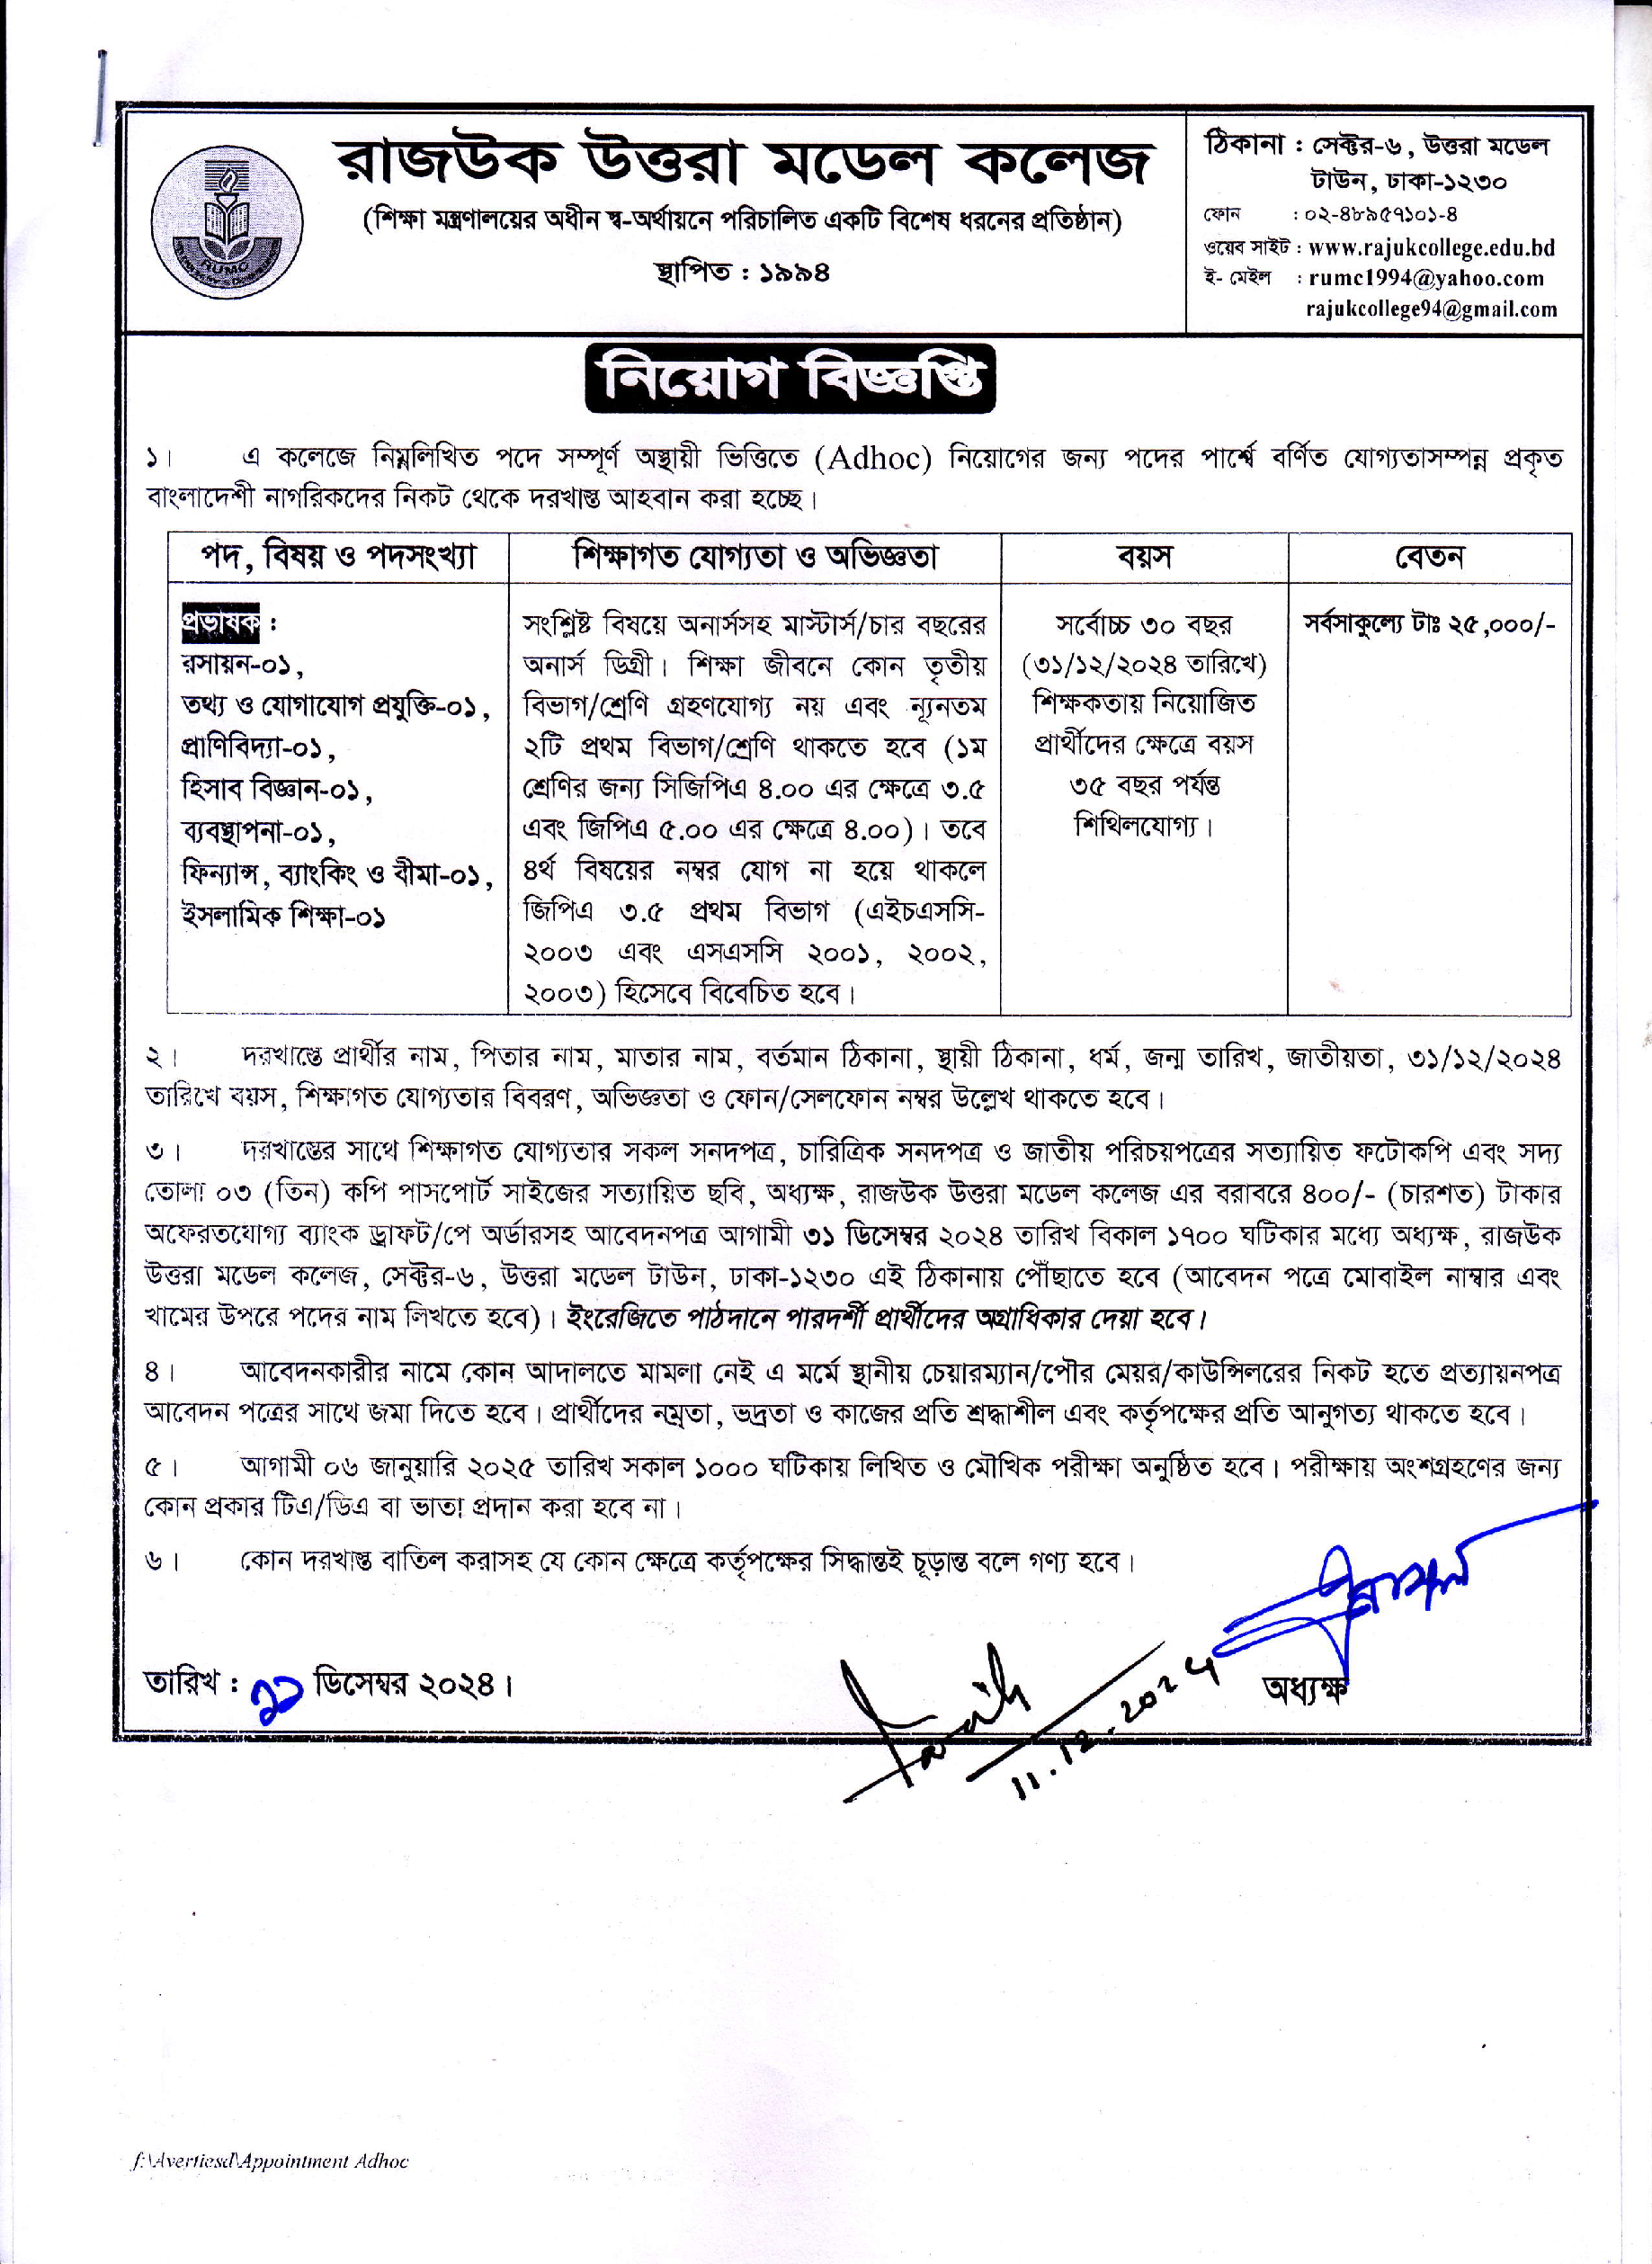 রাজউক উত্তরা মডেল কলেজ
(শিক্ষা মন্ত্রণালয়ের অধীন স্ব-অর্থায়নে পরিচালিত একটি বিশেষ ধরনের প্রতিষ্ঠান)
স্থাপিত : ১৯৯৪
RUMC
ঠিকানা : সেক্টর-৬, উত্তরা মডেল
টাউন, ঢাকা-১২৩০
ফোন : ০২-৪৮৯৫৭১০১-৪
ওয়েব সাইট : www.rajukcollege.edu.bd
ই- মেইল : rumc1994@yahoo.com
rajukcollege94@gmail.com
নিয়োগ বিজ্ঞপ্তি
১। এ কলেজে নিম্নলিখিত পদে সম্পূর্ণ অস্থায়ী ভিত্তিতে (Adhoc) নিয়োগের জন্য পদের পার্শ্বে বর্ণিত যোগ্যতাসম্পন্ন প্রকৃত
বাংলাদেশী নাগরিকদের নিকট থেকে দরখাস্ত আহবান করা হচ্ছে।
পদ, বিষয় ও পদসংখ্যা
প্রভাষক :
রসায়ন-০১,
তথ্য ও যোগাযোগ প্রযুক্তি-০১,
প্রাণিবিদ্যা-০১,
হিসাব বিজ্ঞান-০১,
ব্যবস্থাপনা-০১,
ফিন্যান্স, ব্যাংকিং ও বীমা-০১,
ইসলামিক শিক্ষা-০১
শিক্ষাগত যোগ্যতা ও অভিজ্ঞতা
সংশ্লিষ্ট বিষয়ে অনার্সসহ মাস্টার্স/চার বছরের
অনার্স ডিগ্রী। শিক্ষা জীবনে কোন তৃতীয়
বিভাগ/শ্রেণি গ্রহণযোগ্য নয় এবং ন্যূনতম
২টি প্রথম বিভাগ/শ্রেণি থাকতে হবে (১ম
শ্রেণির জন্য সিজিপিএ ৪.০০ এর ক্ষেত্রে ৩.৫
এবং জিপিএ ৫.০০ এর ক্ষেত্রে ৪.০০)। তবে
৪র্থ বিষয়ের নম্বর যোগ না হয়ে থাকলে
জিপিএ ৩.৫ প্রথম বিভাগ (এইচএসসি-
২০০৩ এবং এসএসসি ২০০১, ২০০২,
২০০৩) হিসেবে বিবেচিত হবে।
বয়স
সর্বোচ্চ ৩০ বছর
(৩১/১২/২০২৪ তারিখে)
শিক্ষকতায় নিয়োজিত
প্রার্থীদের ক্ষেত্রে বয়স
৩৫ বছর পর্যন্ত
শিথিলযোগ্য।
বেতন
সর্বসাকুল্যে টাঃ ২৫,০০০/-
২। দরখাস্তে প্রার্থীর নাম, পিতার নাম, মাতার নাম, বর্তমান ঠিকানা, স্থায়ী ঠিকানা, ধর্ম, জন্ম তারিখ, জাতীয়তা, ৩১/১২/২০২৪
তারিখে বয়স, শিক্ষাগত যোগ্যতার বিবরণ, অভিজ্ঞতা ও ফোন/সেলফোন নম্বর উল্লেখ থাকতে হবে।
৩। দরখাস্তের সাথে শিক্ষাগত যোগ্যতার সকল সনদপত্র, চারিত্রিক সনদপত্র ও জাতীয় পরিচয়পত্রের সত্যায়িত ফটোকপি এবং সদ্য
তোলা ০৩ (তিন) কপি পাসপোর্ট সাইজের সত্যায়িত ছবি, অধ্যক্ষ, রাজউক উত্তরা মডেল কলেজ এর বরাবরে ৪০০/- (চারশত) টাকার
অফেরতযোগ্য ব্যাংক ড্রাফট/পে অর্ডারসহ আবেদনপত্র আগামী ৩১ ডিসেম্বর ২০২৪ তারিখ বিকাল ১৭০০ ঘটিকার মধ্যে অধ্যক্ষ, রাজউক
উত্তরা মডেল কলেজ, সেক্টর-৬, উত্তরা মডেল টাউন, ঢাকা-১২৩০ এই ঠিকানায় পৌঁছাতে হবে (আবেদন পত্রে মোবাইল নাম্বার এবং
খামের উপরে পদের নাম লিখতে হবে)। ইংরেজিতে পাঠদানে পারদর্শী প্রার্থীদের অগ্রাধিকার দেয়া হবে।
৪। আবেদনকারীর নামে কোন আদালতে মামলা নেই এ মর্মে স্থানীয় চেয়ারম্যান/পৌর মেয়র/কাউন্সিলরের নিকট হতে প্রত্যায়নপত্র
আবেদন পত্রের সাথে জমা দিতে হবে। প্রার্থীদের নম্রতা, ভদ্রতা ও কাজের প্রতি শ্রদ্ধাশীল এবং কর্তৃপক্ষের প্রতি আনুগত্য থাকতে হবে।
৫। আগামী ০৬ জানুয়ারি ২০২৫ তারিখ সকাল ১০০০ ঘটিকায় লিখিত ও মৌখিক পরীক্ষা অনুষ্ঠিত হবে। পরীক্ষায় অংশগ্রহণের জন্য
কোন প্রকার টিএ/ডিএ বা ভাতা প্রদান করা হবে না।
৬। কোন দরখাস্ত বাতিল করাসহ যে কোন ক্ষেত্রে কর্তৃপক্ষের সিদ্ধান্তই চূড়ান্ত বলে গণ্য হবে।
তারিখ : ১১ ডিসেম্বর ২০২৪।
অধ্যক্ষ
11.12.2024
f:\Avertiesd\Appointment Adhoc